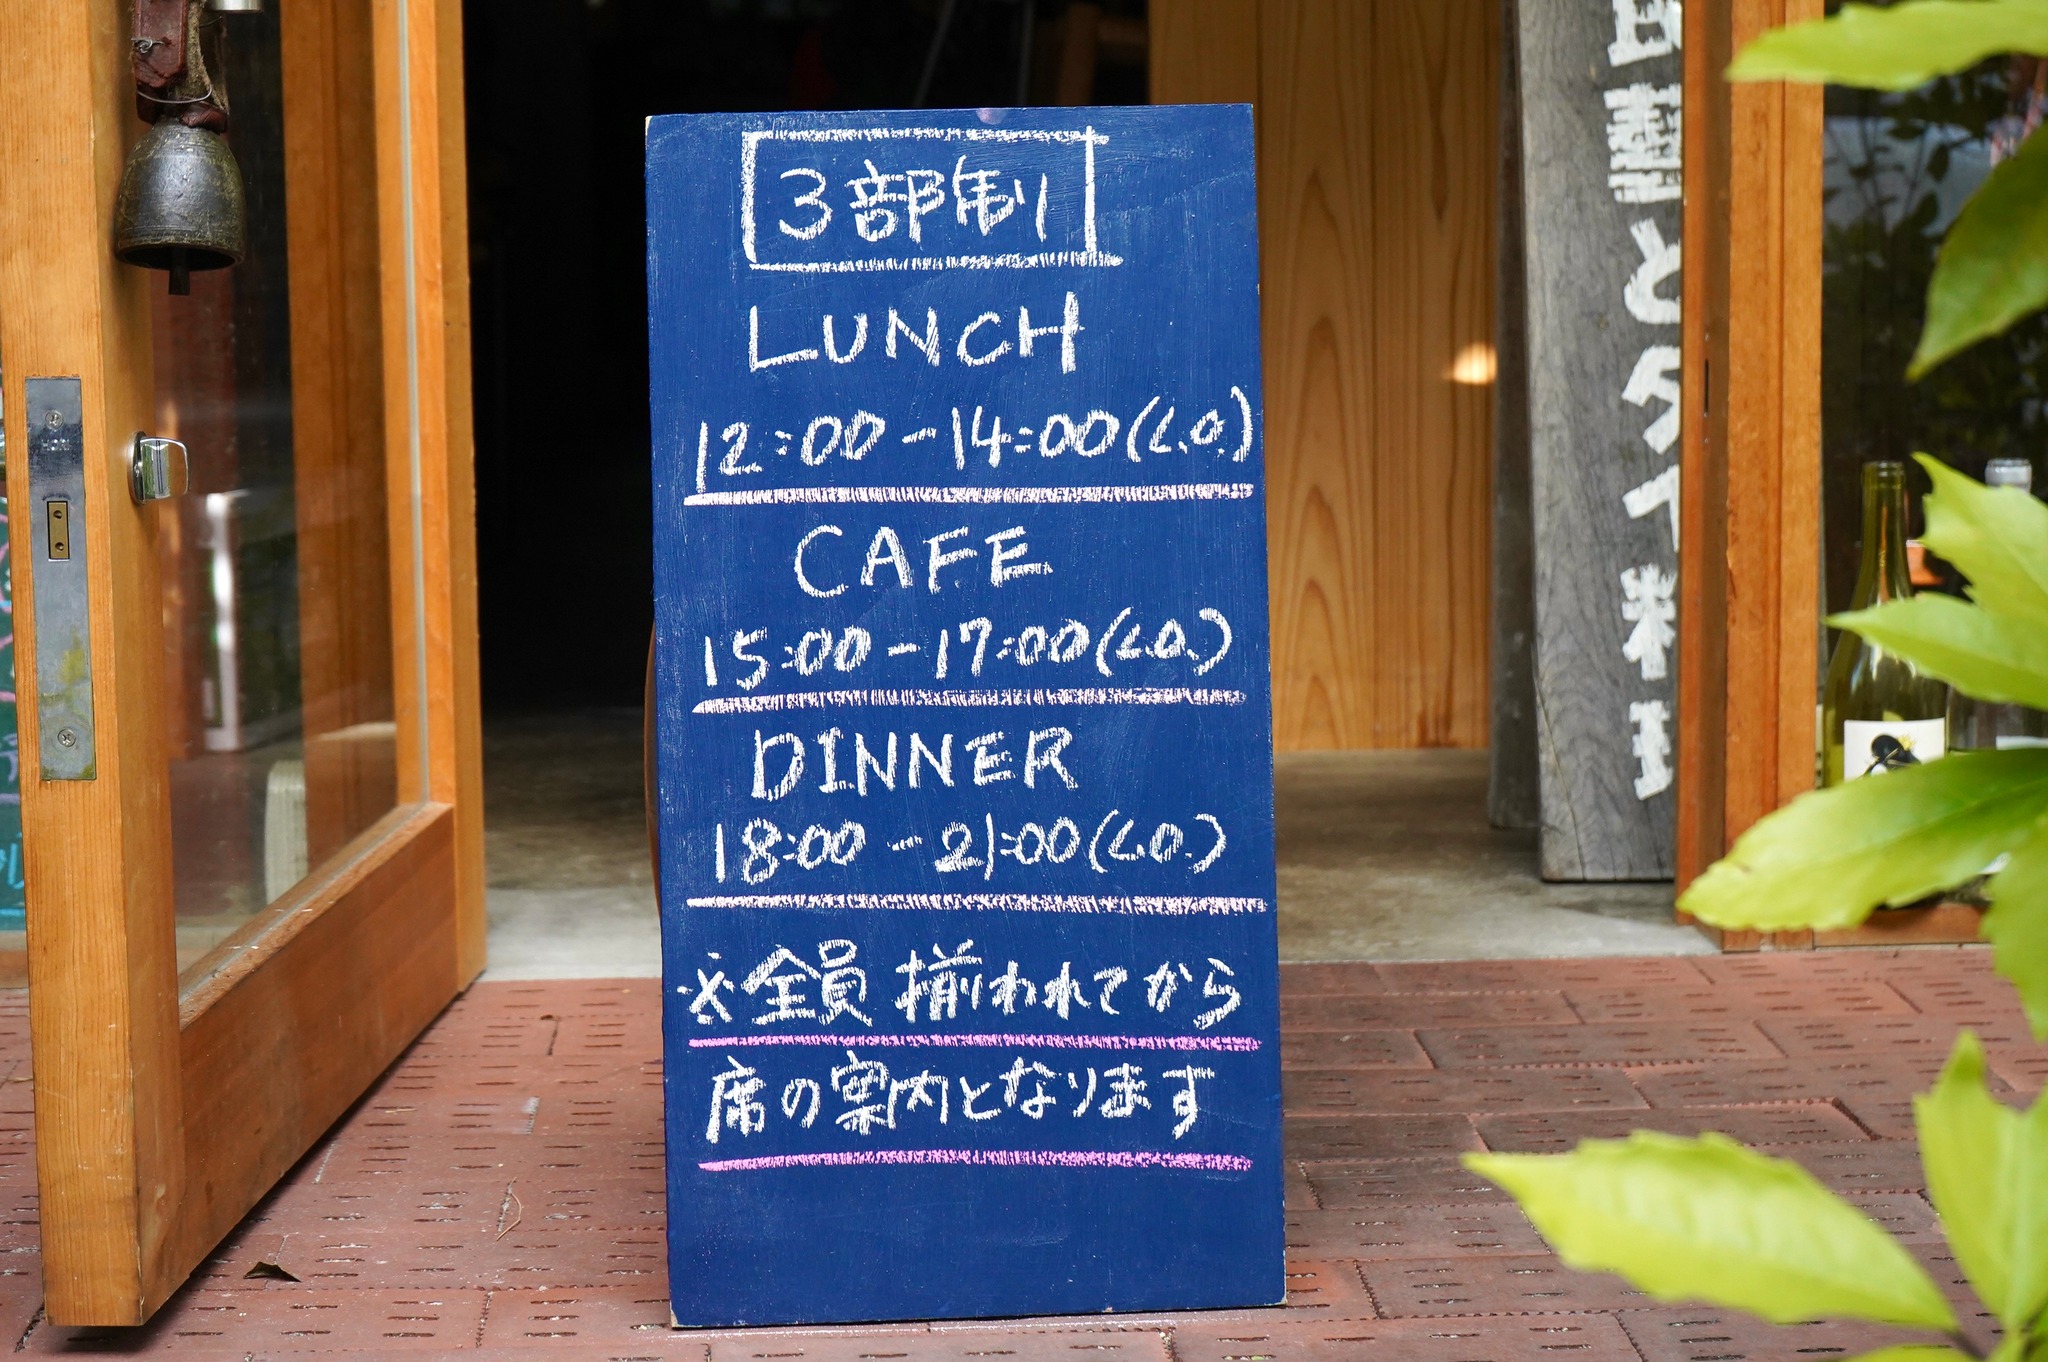 3部制
LUNCH
12:00-14:00(L.O.)
CAFE
15:00-17:00(L.O.)
DINNER
18:00-21:00(L.O.)
※全員揃われてから
席の案内となります
とタイ料理